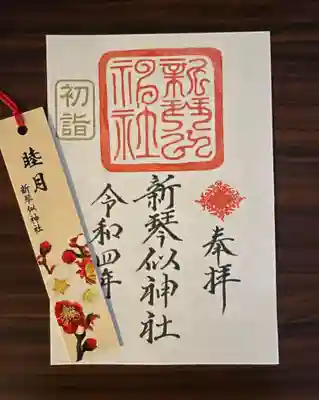 奉拝
新琴似神社
令和四年
初詣
睦月
新琴似神社